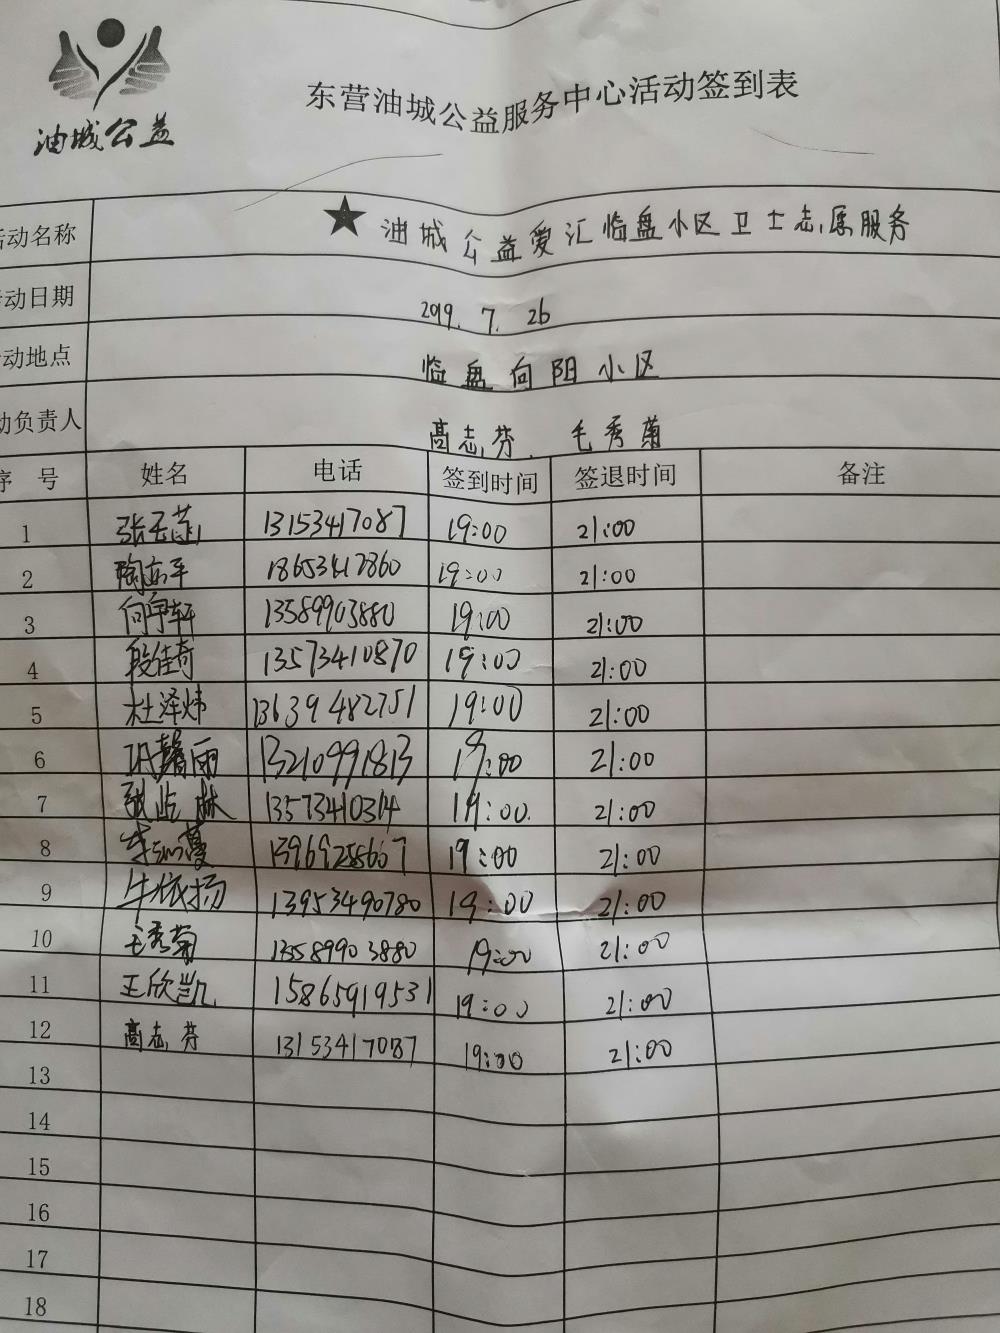 油城公益
东营油城公益服务中心活动签到表
活动名称 ★油城公益爱汇临盘小区卫士志愿服务
活动日期 2019.7.26
活动地点 临盘向阳小区
活动负责人 高志芬、毛秀菊
序号 姓名 电话 签到时间 签退时间 备注
1 张玉莲 13153417087 19:00 21:00
2 陶志平 18653412860 19:00 21:00
3 向宇轩 13589903880 19:00 21:00
4 段佳奇 13573410870 19:00 21:00
5 杜泽炜 13639482751 19:00 21:00
6 馨雨 13210991813 19:00 21:00
7 张屹林 13573410314 19:00 21:00
8 蔓 13969288607 19:00 21:00
9 牛依扬 13953490780 19:00 21:00
10 毛秀菊 13589903880 19:00 21:00
11 王欣凯 15865919531 19:00 21:00
12 高志芬 13153417087 19:00 21:00
13
14
15
16
17
18